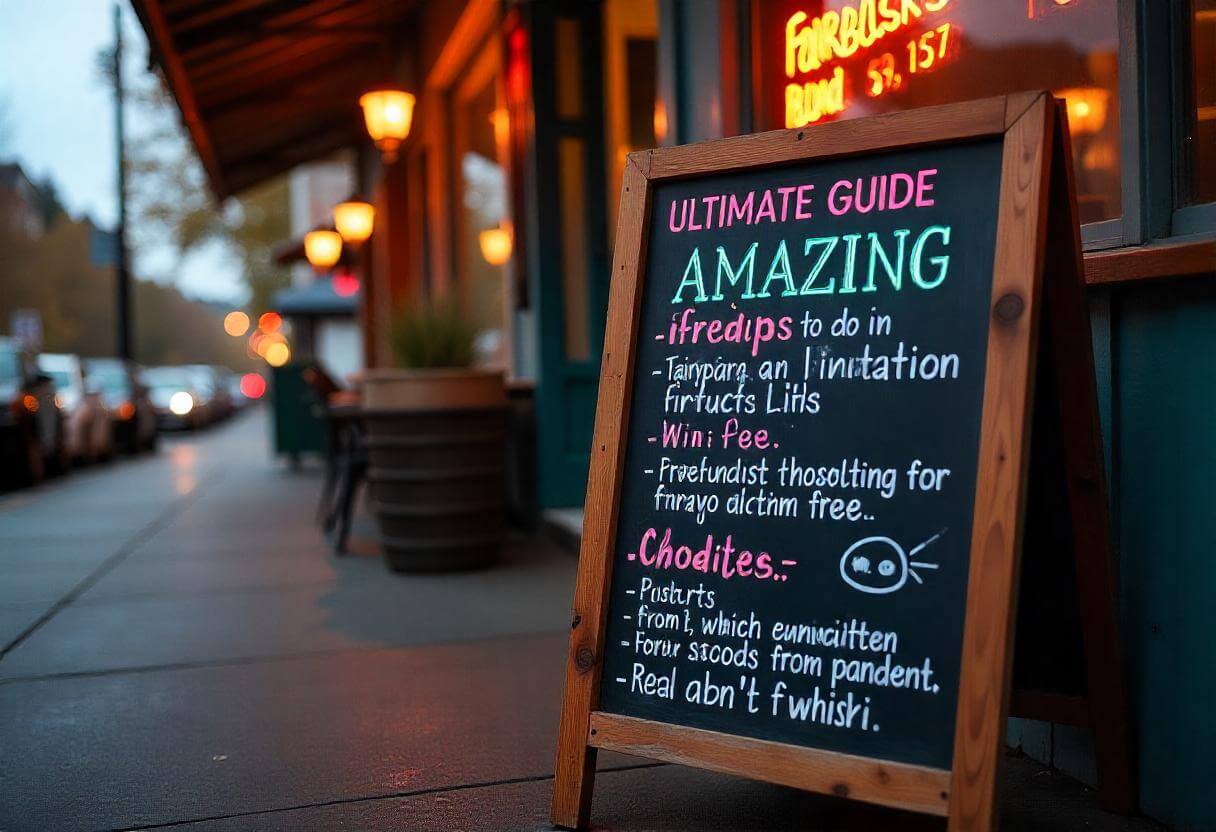 FaiRBusks
BUnd 59, 157
ULTIMATE GUIDE
AMAZING
-ifredips to do in
- Tairyparg an linitation
firfucts Lihs
- Win: fee.
- Prvefundist thosolting for
fnrayo alcthm free..
- Chodites.-
- Pusturts
- from l, which
- Forur scoods from pandent.
- Real abn't fwhisri.